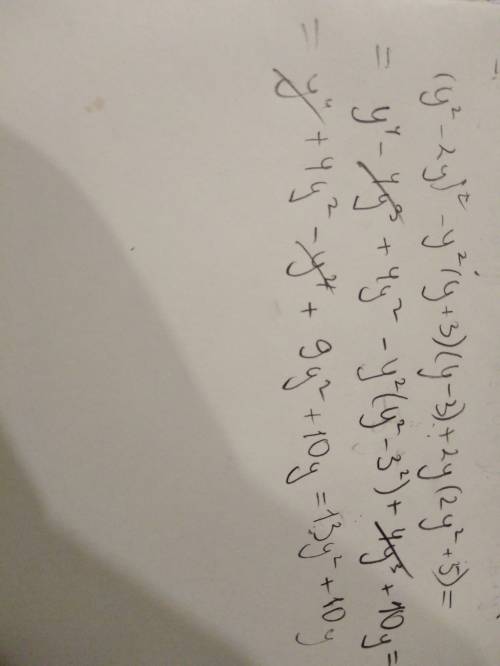 (y² - 2y)² - y²(y+3)(y-3) + 2y(2y²+5) =
= y⁴ - 4y³ + 4y² - y²(y² - 3²) + 4y³ + 10y =
= y⁴ + 4y² - y⁴ + 9y² + 10y = 13y² + 10y